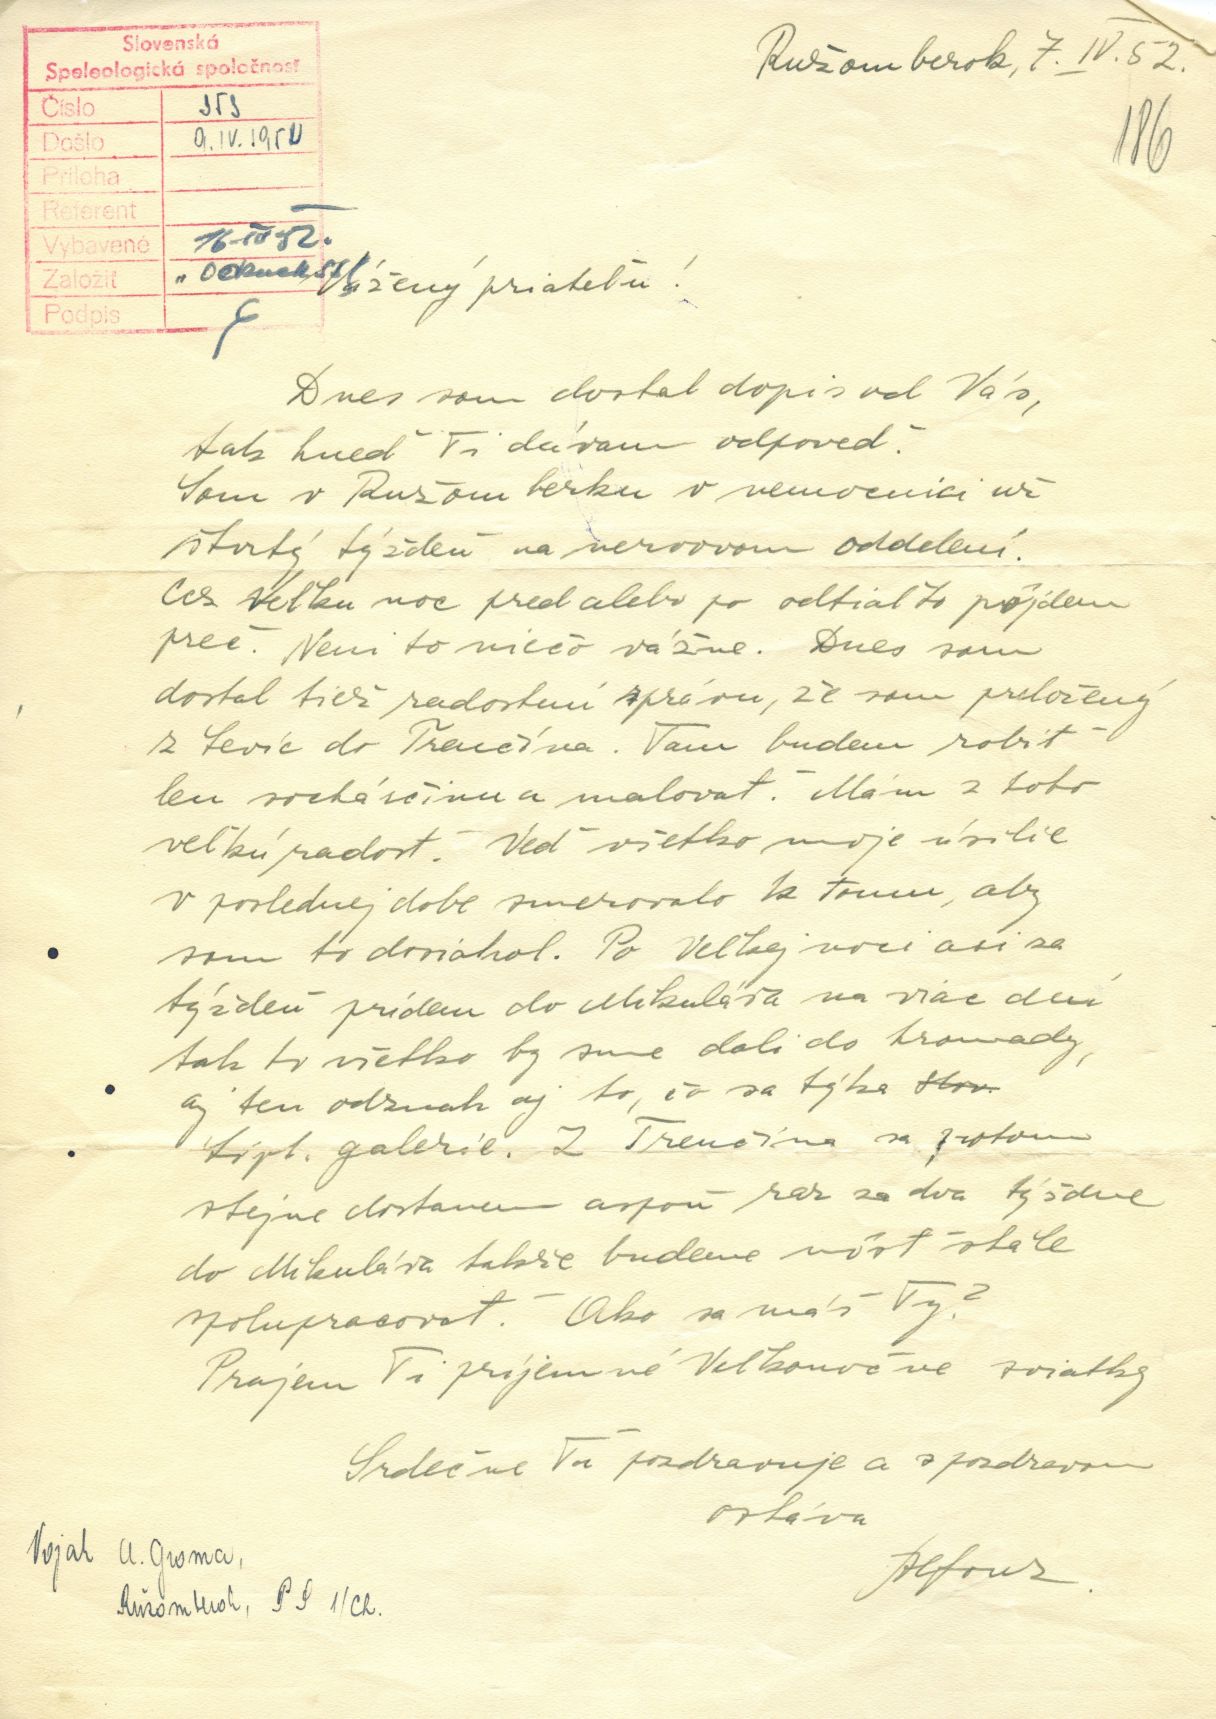 Slovenská
Speleologická spoločnosť
Číslo
Došlo 9.IV.1952
Príloha
Referent
Vybavené 16.IV.52.
Založiť "Odznak SSS"
Podpis
Ružomberok, 7. IV. 52.
186
Vážený priateľu!
Dnes som dostal dopis od Vás,
tak hneď Ti dávam odpoveď.
Som v Ružomberku v nemocnici už
štvrtý týždeň na nervovom oddelení.
Cez Veľku noc pred alebo po odtiaľto pôjdem
preč. Neni to niečo vážne. Dnes som
dostal tiež radostnú správu, že som preložený
z Levíc do Trenčína. Tam budem robiť
len sochárčinu a malovať. Mám z toho
veľkú radosť. Veď všetko moje úsilie
v poslednej dobe smerovalo k tomu, aby
som to dosiahol. Po Veľkej noci asi za
týždeň prídem do Mikuláša na viac dní
tak to všetko by sme dali do hromady,
aj ten odznak aj to, čo sa týka Slov.
Lipt. galerie. Z Trenčína sa potom
stejne dostanem aspoň raz za dva týždne
do Mikuláša takže budeme môsť stále
spolupracovať. Ako sa máš Ty?
Prajem Ti príjemné Veľkonočne sviatky
Srdečne Ťa pozdravuje a s pozdravom
ostáva
Alfonz.
Vojak A. Groma,
Ružomberok, PS 1/Ch.